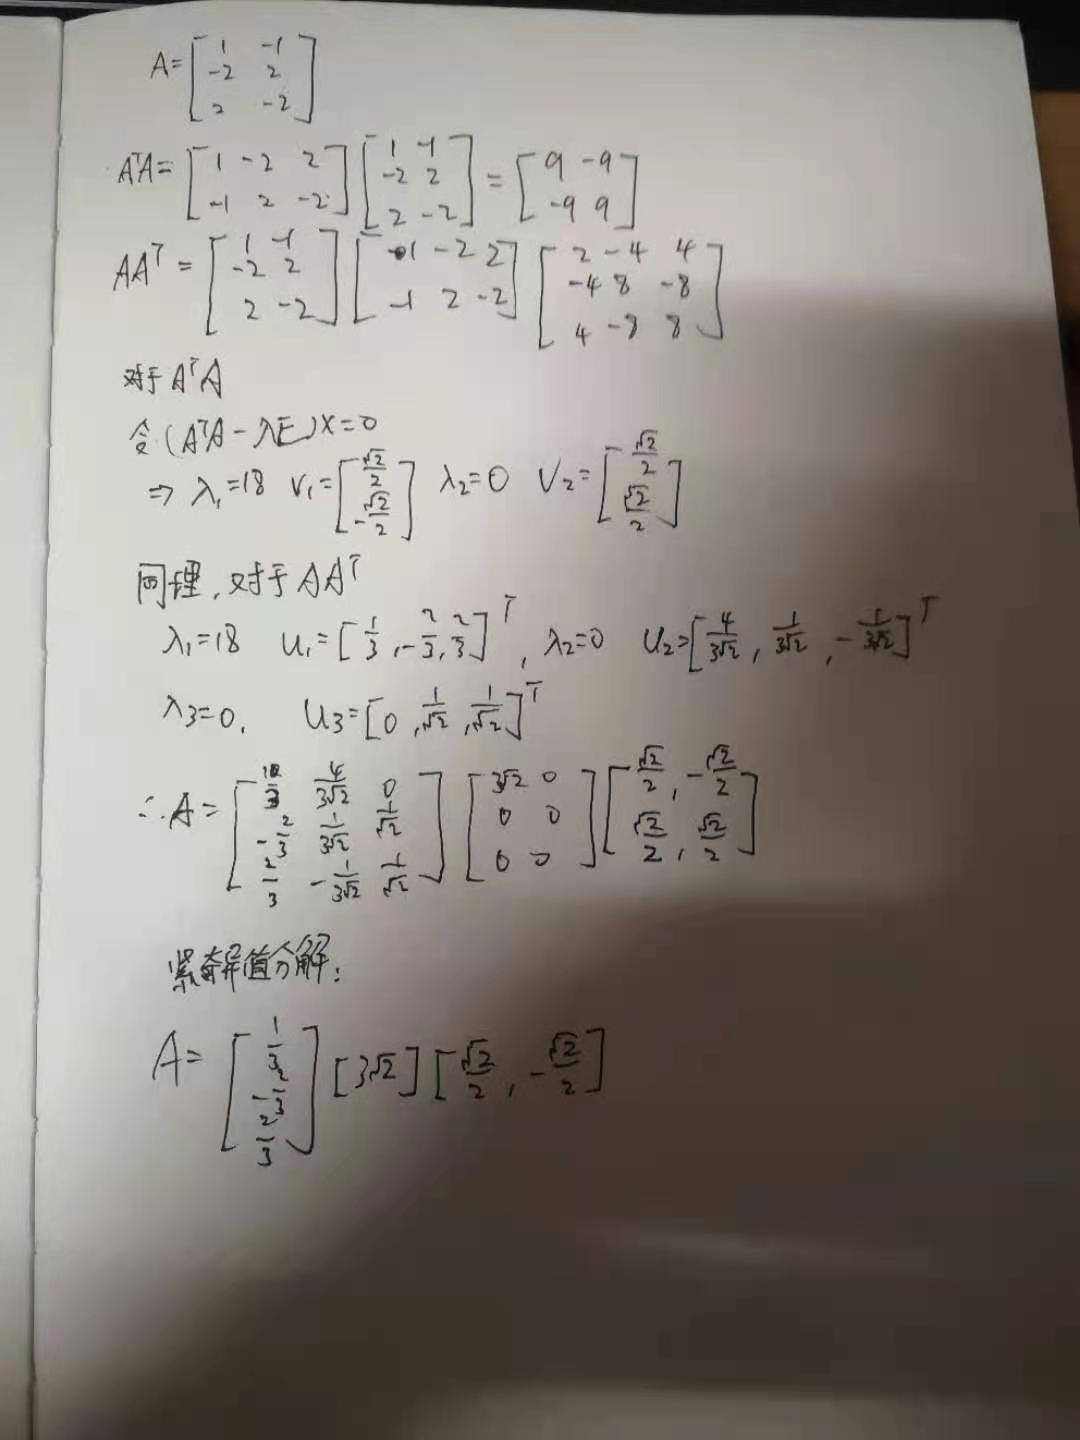 A = [1 -1; -2 2; 2 -2]
AᵀA = [1 -2 2; -1 2 -2] [1 -1; -2 2; 2 -2] = [9 -9; -9 9]
AAᵀ = [1 -1; -2 2; 2 -2] [1 -2 2; -1 2 -2] [2 -4 4; -4 8 -8; 4 -8 8]
对于 AᵀA
令 (AᵀA - λE)x = 0
⇒ λ₁=18 v₁=[√2/2; -√2/2] λ₂=0 v₂=[√2/2; √2/2]
同理,对于 AAᵀ
λ₁=18 u₁=[1/3, -2/3, 2/3]ᵀ, λ₂=0 u₂=[4/(3√2), 1/(3√2), -1/(3√2)]ᵀ
λ₃=0, u₃=[0, 1/√2, 1/√2]ᵀ
∴ A = [1/3 4/(3√2) 0; -2/3 1/(3√2) 1/√2; 2/3 -1/(3√2) 1/√2] [3√2 0; 0 0; 0 0] [√2/2, -√2/2; √2/2, √2/2]
紧奇异值分解:
A = [1/3; -2/3; 2/3] [3√2] [√2/2, -√2/2]